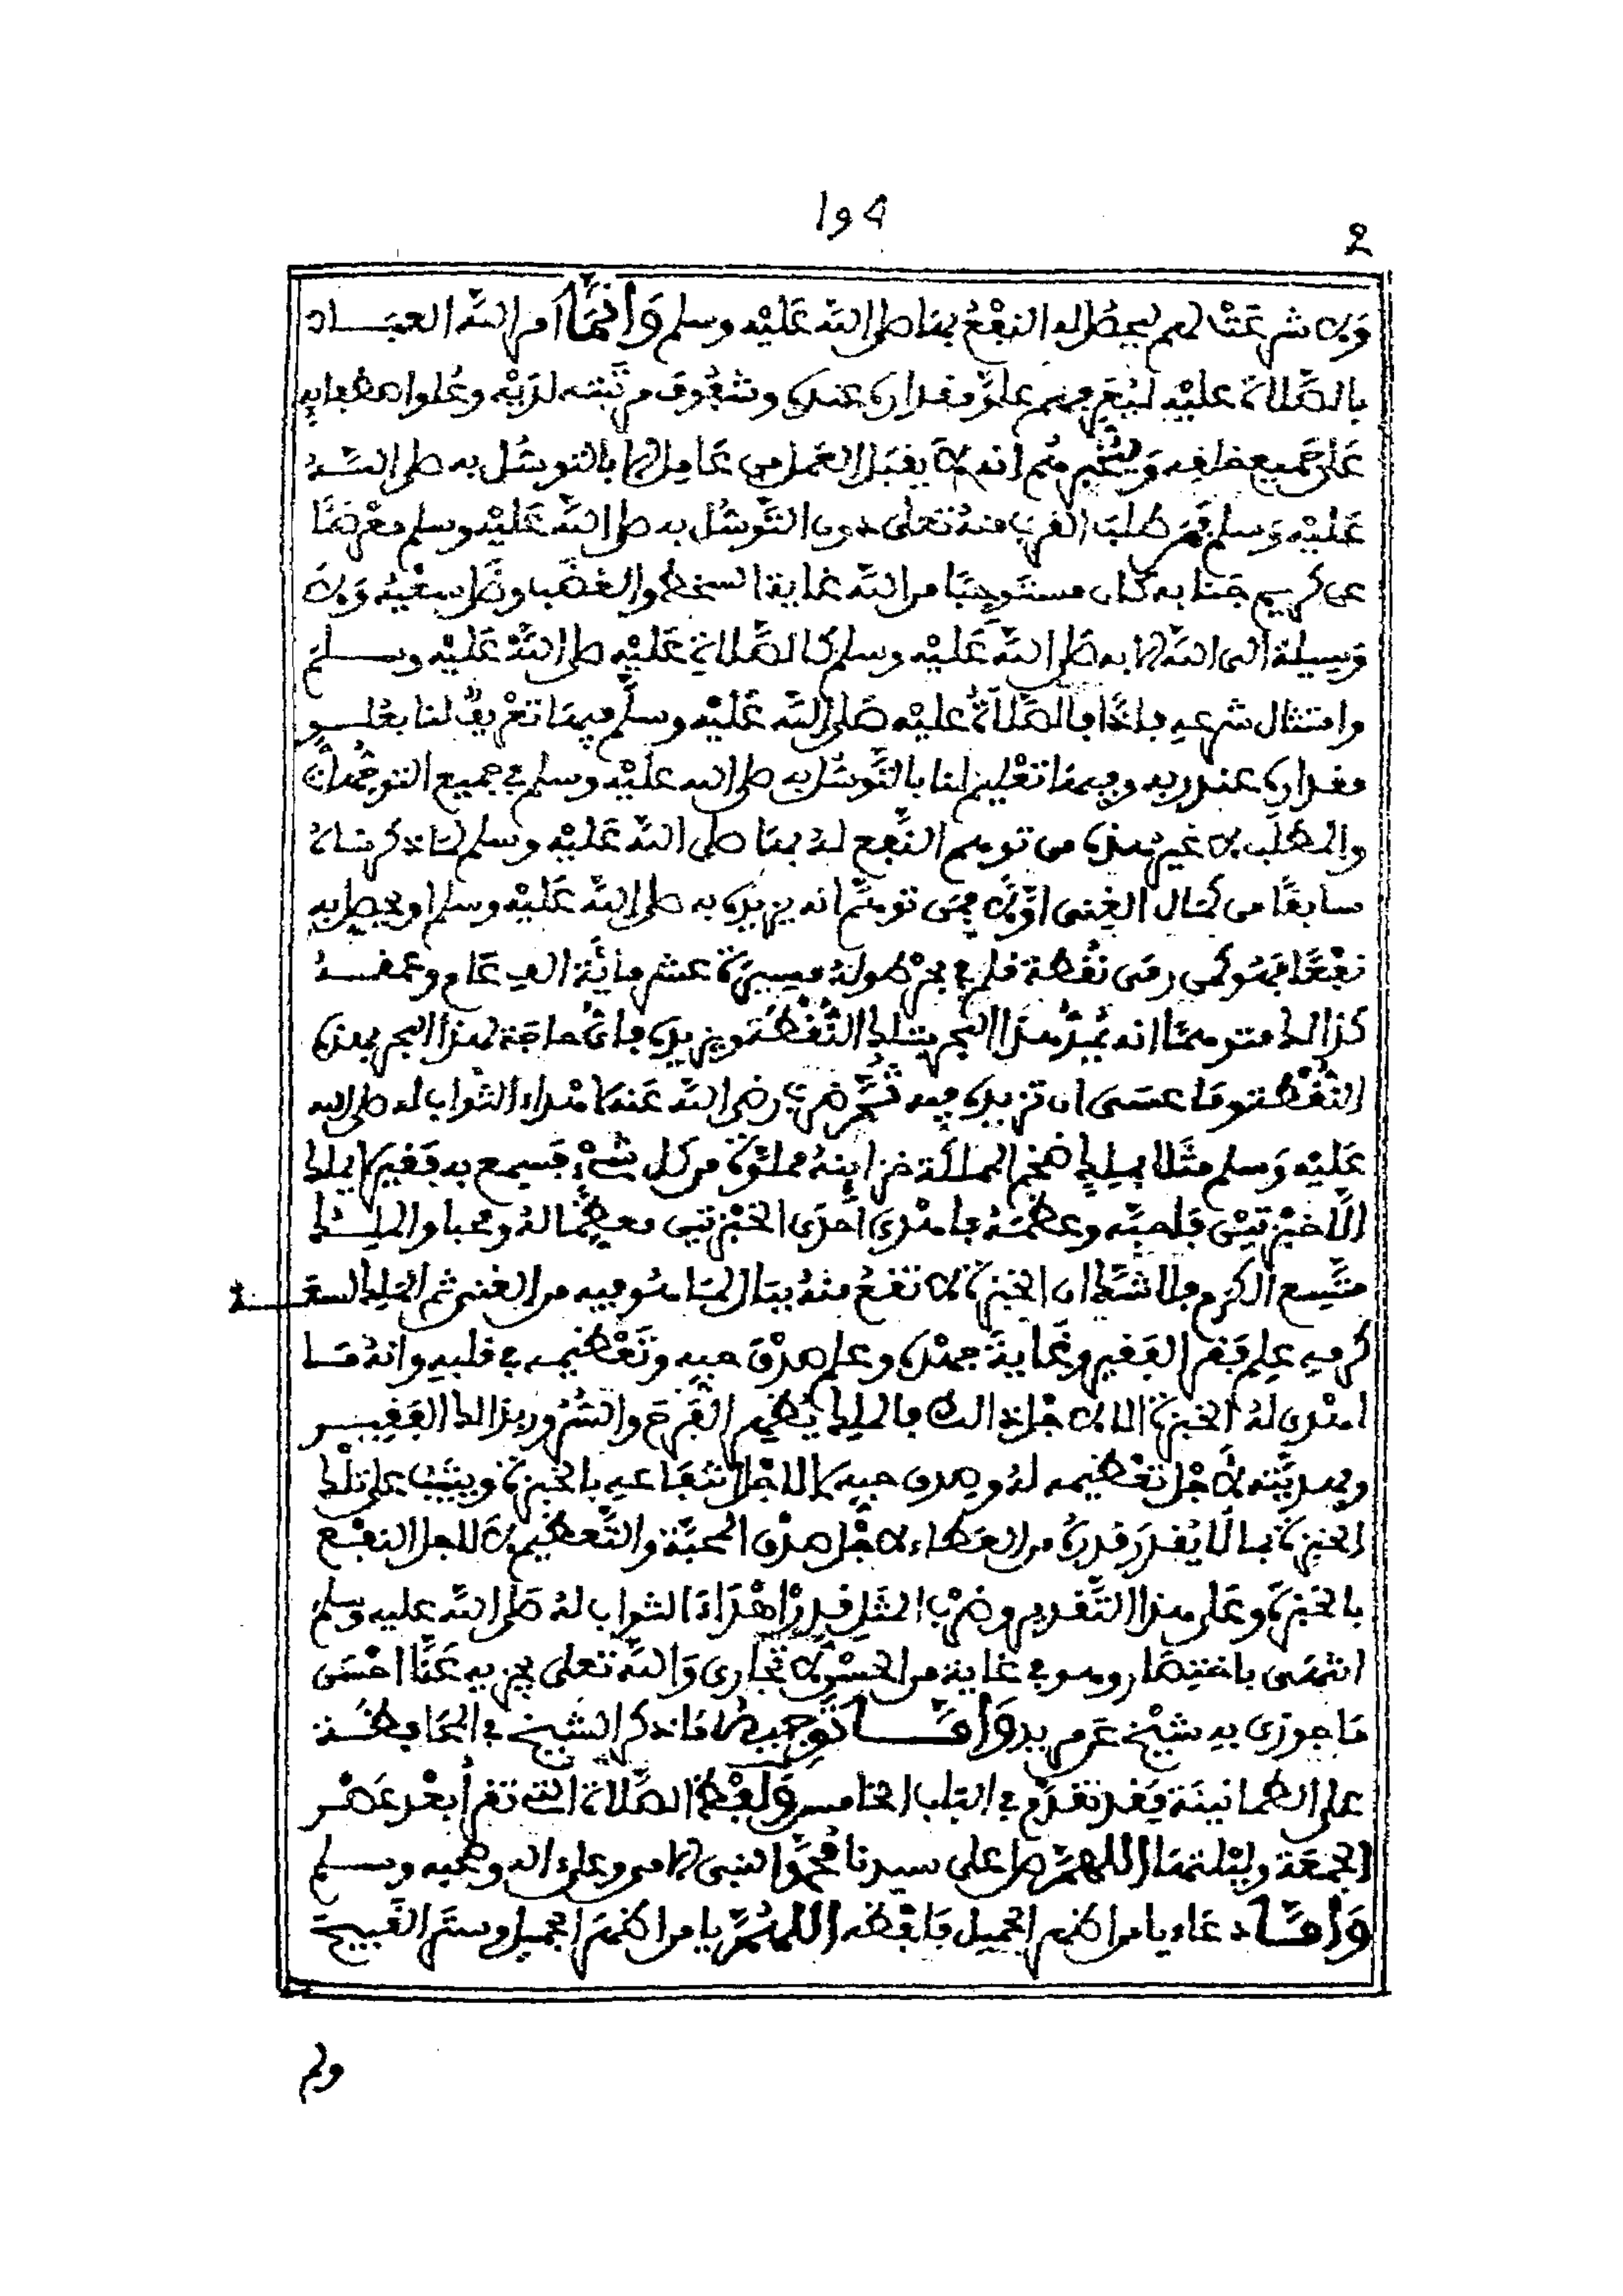 194
2
ولا شرعت لهم ليحصل له النفع بها صلى الله عليه وسلم وإنما أمر الله العباد
بالصلاة عليه ليعرفهم علو مقداره عنده وشفوف مرتبته لديه وعلو اصطفائيه
على جميع خلقه وليخبرهم أنه لا يقبل العمل من عامل إلا بالتوسل به صلى الله
عليه وسلم فمن طلب القرب منه تعلى دون التوسل به صلى الله عليه وسلم معرضا
عن كريم جنابه كان مستوجبا من الله غاية السخط والغضب وضل سعيه ولا
وسيلة الى الله إلا به صلى الله عليه وسلم كالصلاة عليه صلى الله عليه وسلم
وامتثال شرعه فإذا بالصلاة عليه صلى الله عليه وسلم فيها تعريف لنا بعلو
مقداره عند ربه وفيها تعليم لنا بالتوسل به صلى الله عليه وسلم في جميع التوجهات
والمطلب لا غير هذه من توهم النفع له بها صلى الله عليه وسلم لما ذكرناه
سابقا من كمال الغنى أولا فمن توهم أنه يزيده به صلى الله عليه وسلم أو يحصل به
نفعا فهو كمن رمى نقطة قلم في بحر طوله مسيرة عشر مائة ألف عام وعمقه
كذالك متوهما أنه يمد هذا البحر بتلك النقطة ويزيده فأي حاجة لهذا البحر بهذه
النقطة وما عسى ان تزيده فيه ثم ضرب رضي الله عنه لإهداء الثواب له صلى الله
عليه وسلم مثلا بملك ضخم المملكة خزاينه مملوة من كل شيء فسمع به فقير لا يملك
الا خبزتين فاحبه وعظمه فاهدى احدى الخبزتين معظما له ومحبا والملك
متسع الكرم فلا شك ان الخبزة لا تقع منه ببال لما هو فيه من الغنى ثم الملك لسعة
كرمه علم فقر الفقير وغاية جهده وعلم صدق حبه وتعظيمه في قلبه وانه ما
اهدى له الخبزة الا لاجل ذالك فالملك يظهر الفرح والسرور بذالك الفقير
وبهديته لأجل تعظيمه له وصدق حبه لا لاجل انتفاعه بالخبزة ويثيب على تلك
الخبزة بما لا يقدر قدره من العطاء لاجل صدق المحبة والتعظيم لا لاجل النفع
بالخبزة وعلى هذا التقدير وضرب المثل قدر إهداء الثواب له صلى الله عليه وسلم
انتهى باختصار وهو في غاية من الحسن لا تجارى والله تعلى يجزيه عنا احسن
ما جوزى به شيخ عن مريد وأما توجيه ما ذكر الشيخ في المحافظة
على الطمانينة فقد تقدم في الباب الخامس ولفظ الصلاة التي تقرأ بعد عصر
الجمعة وليلتها اللهم صل على سيدنا محمد النبي الامي وعلى اله وصحبه وسلم
وأما دعاء يا من اظهر الجميل فلفظه اللهم يا من اظهر الجميل وستر القبيح
ولم